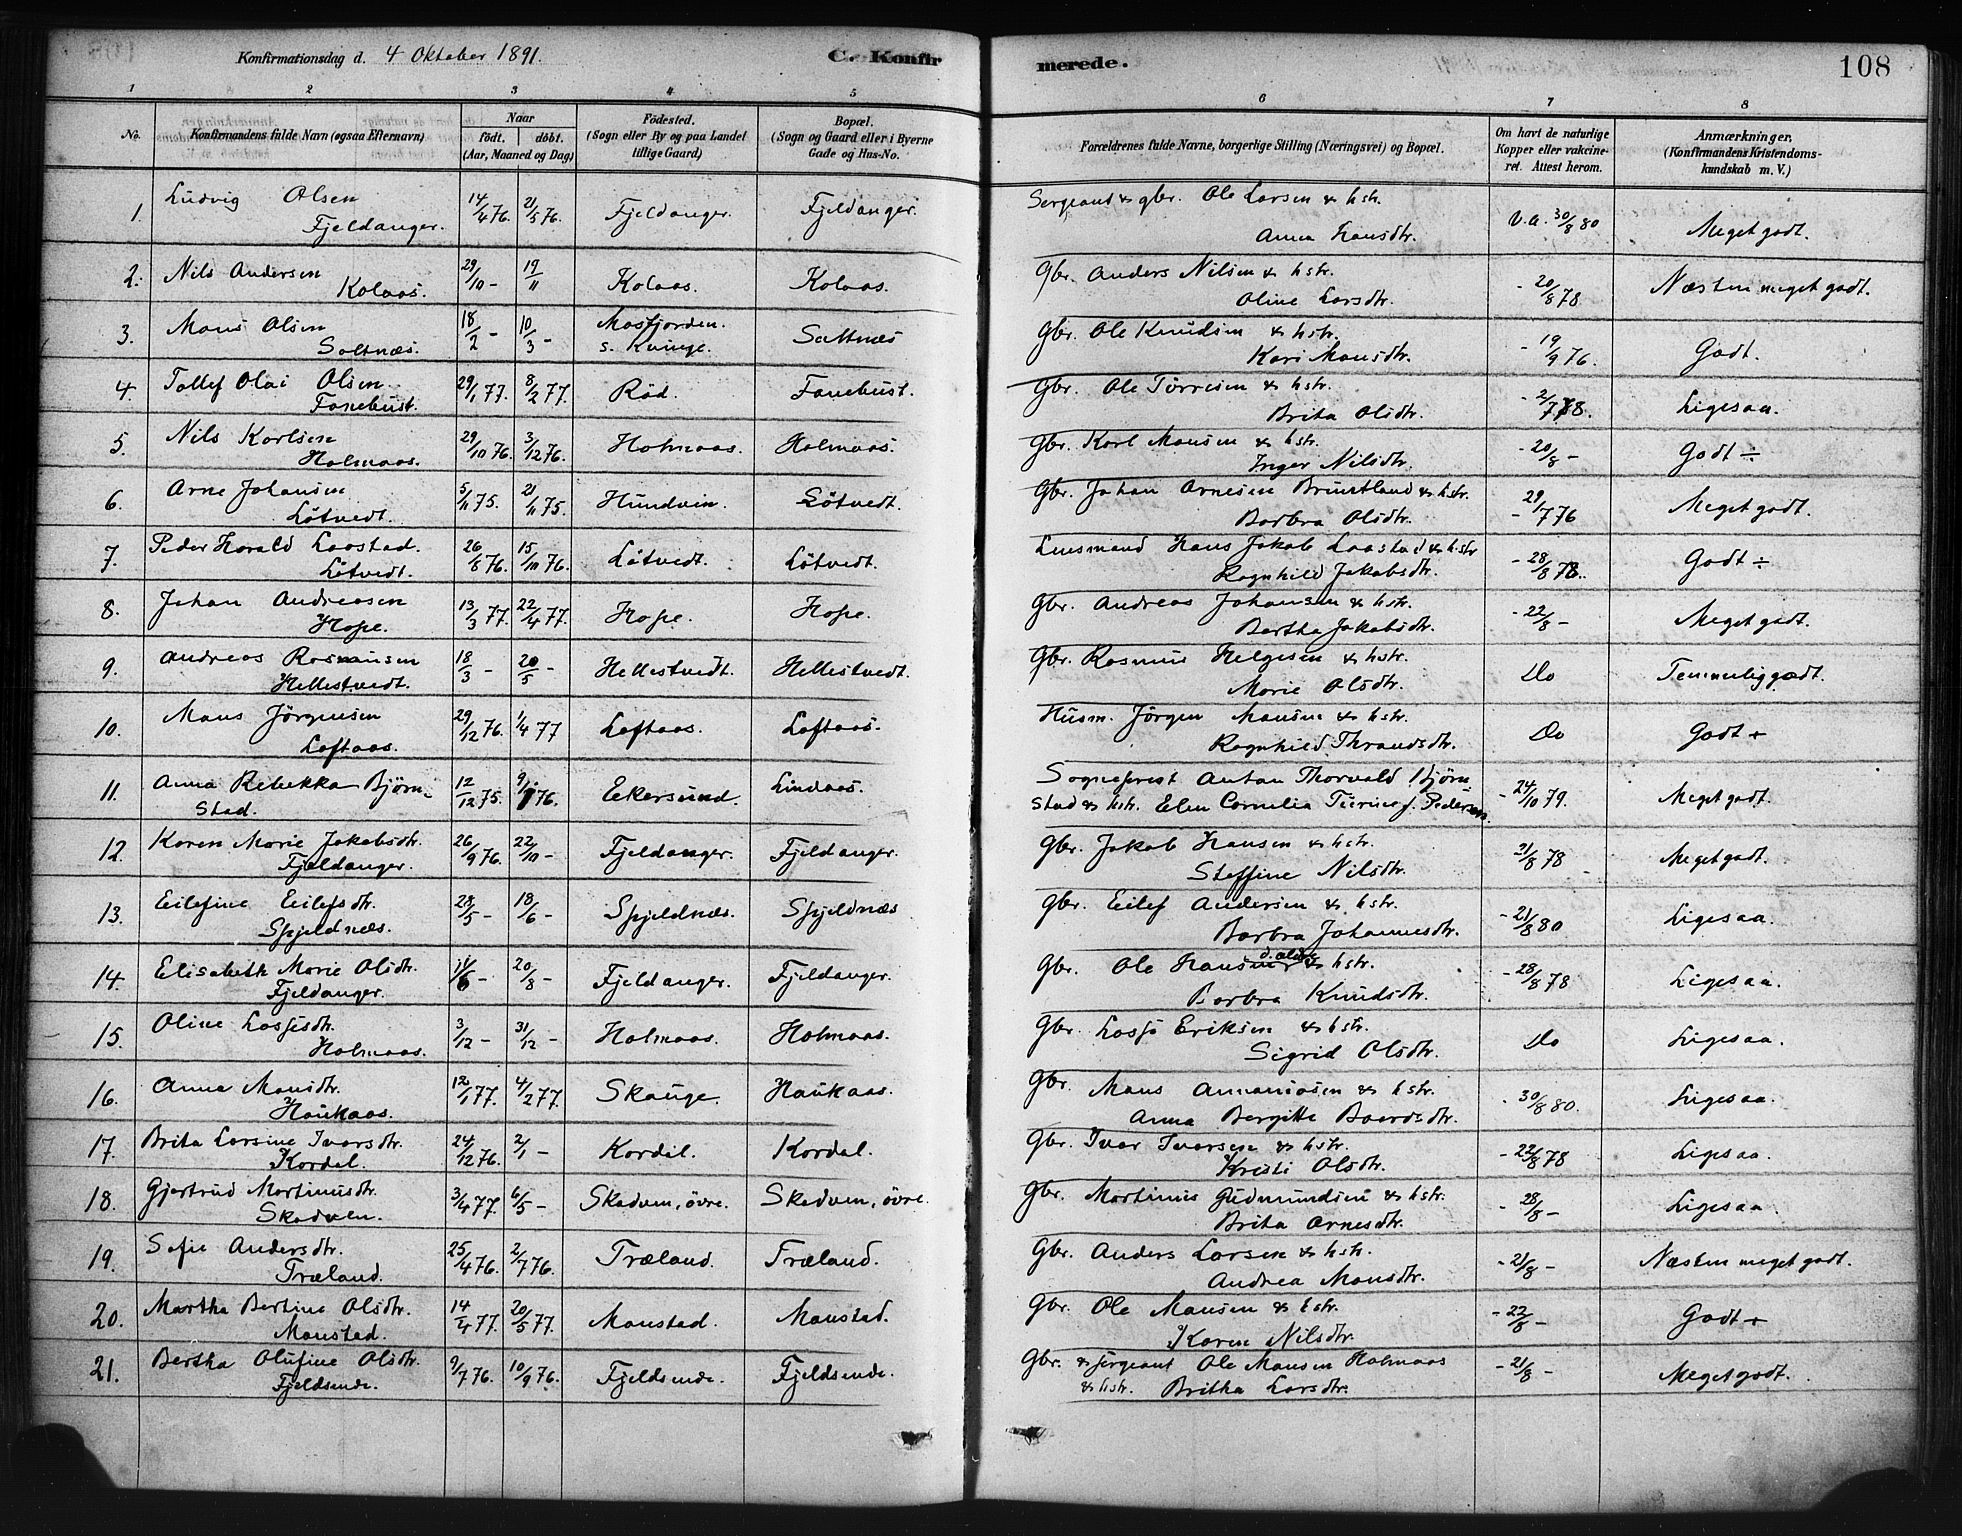 Konfirmationsdag d. 4 Oktober 1891.
C. Konfirmerede.
108
1 2 3 4 5 6 7 8
No.
Konfirmandens fulde Navn (ogsaa Efternavn)
Naar
födt. döbt.
(Aar, Maaned og Dag)
Födested.
(Sogn eller By og paa Landet
tillige Gaard)
Bopæl.
(Sogn og Gaard eller i Byerne
Gade og Hus-No.
Forældrenes fulde Navne, borgerlige Stilling (Næringsvei) og Bopæl.
Om havt de naturlige
Kopper eller vakcine-
ret. Attest herom.
Anmærkninger.
(Konfirmandens Kristendoms-
kundskab m. V.)
1. Ludvig Olsen 14/4 76. 21/5 76. Fjeldanger. Fjeldanger. Sergeant & gbr. Ole Larsen & hstr. V.a. 30/8 80 Meget godt.
Fjeldanger. Anna Hansdtr.
2. Nils Andersen 29/10 - 19/11 Kolaas. Kolaas. Gbr. Anders Nilsen & hstr. - 20/8 78. Næsten meget godt.
Kolaas. Oline Larsdtr.
3. Mons Olsen 18/2 - 10/3 - Masfjorden. Saltnæs Gbr. Ole Knudsen & hstr. - 19/9 76. Godt.
Saltnæs. s. Kvinge. Kari Monsdtr.
4. Tollef Olai Olsen 29/1 77. 8/2 77. Röd. Fanebust. Gbr. Ole Törresen & hstr. - 2/7 78. Ligesaa.
Fanebust. Brita Olsdtr.
5. Nils Karlsen 29/10 76. 3/12 76. Holmaas. Holmaas. Gbr. Karl Monsen & hstr. - 20/8 - Godt ÷
Holmaas. Inger Nilsdtr.
6. Arne Johansen 5/11 75. 21/11 75. Hundvin. Lötvedt. Gbr. Johan Arnesen Bruntland & hstr. - 29/7 76 Meget godt.
Lötvedt. Barbra Olsdtr.
7. Peder Harald Laastad. 26/8 76. 15/10 76. Lötvedt. Lötvedt. Lensmand Hans Jakob Laastad & hstr - 28/8 78. Godt ÷
Lötvedt. Ragnhild Jakobsdtr.
8. Johan Andreasen 13/3 77. 22/4 77. Hope. Hope. Gbr. Andreas Johansen & hstr. - 22/8 - Meget godt.
Hope. Bertha Jakobsdtr.
9. Andreas Rasmusen 18/3 - 20/5 - Hellestvedt. Hellestvedt. Gbr. Rasmus Helgesen & hstr. Do Temmelig godt.
Hellestvedt. Marie Olsdtr.
10. Mons Jörgensen 29/12 76. 1/4 77 Loftaas. Loftaas. Husm. Jörgen Monsen & hstr. Do Godt +
Loftaas. Ragnhild Thrandsdtr.
11. Anna Rebekka Björn- 12/12 75. 9/1 76. Ekersund. Lindaas. Sogneprest Anton Thorvald Björn - 24/10 79. Meget godt.
stad. stad & hstr. Elen Cornelia f. Pedersen.
12. Karen Marie Jakobsdtr. 26/9 76. 22/10 - Fjeldanger. Fjeldanger. Gbr. Jakob Hansen & hstr. 21/8 78 Meget godt.
Fjeldanger. Steffine Nilsdtr.
13. Eilefine Eilefsdtr. 28/5 - 18/6 - Spjeldnæs. Spjeldnæs Gbr. Eilef Andersen & hstr. - 21/8 80 Ligesaa.
Spjeldnæs. Barbra Johannesdtr.
14. Elisabeth Marie Olsdtr. 11/6 - 20/8 - Fjeldanger. Fjeldanger. Gbr. Ole Hansen d. ældre & hstr. - 28/8 78 Ligesaa.
Fjeldanger. Barbra Knudsdtr.
15. Oline Lassesdtr. 3/12 - 31/12 - Holmaas. Holmaas. Gbr. Lasse Eriksen & hstr. Do Ligesaa.
Holmaas. Sigrid Olsdtr.
16. Anna Monsdtr. 12/1 77. 4/2 77. Skauge. Haukaas. Gbr. Mons Annaniasen & hstr. - 30/8 80. Ligesaa.
Haukaas. Anna Bergitte Baardsdtr.
17. Brita Larsine Ivarsdtr. 24/12 76. 2/1 - Kordal. Kordal. Gbr. Ivar Ivarsen & hstr. - 22/8 78 Ligesaa.
Kordal. Kristi Olsdtr.
18. Gjertrud Martinusdtr. 3/4 77. 6/5 - Skodven, övre. Skodven, övre. Gbr. Martinus Gudmundsen & hstr. - 28/8 - Ligesaa.
Skodven. Brita Arnesdtr.
19. Sofie Andersdtr. 25/4 76. 2/7 76. Træland. Træland. Gbr. Anders Larsen & hstr. - 21/8 - Næsten meget godt.
Træland. Andrea Monsdtr.
20. Martha Bertine Olsdtr. 14/4 77. 20/5 77. Monstad. Monstad. Gbr. Ole Monsen & hstr. - 22/8 - Godt +
Monstad. Karen Nilsdtr.
21. Bertha Olufine Olsdtr. 9/7 76. 10/9 76. Fjeldsende. Fjeldsende. Gbr. & sergeant Ole Monsen Holmaas - 21/8 - Meget godt.
Fjeldsende. & hstr. Britha Larsdtr.